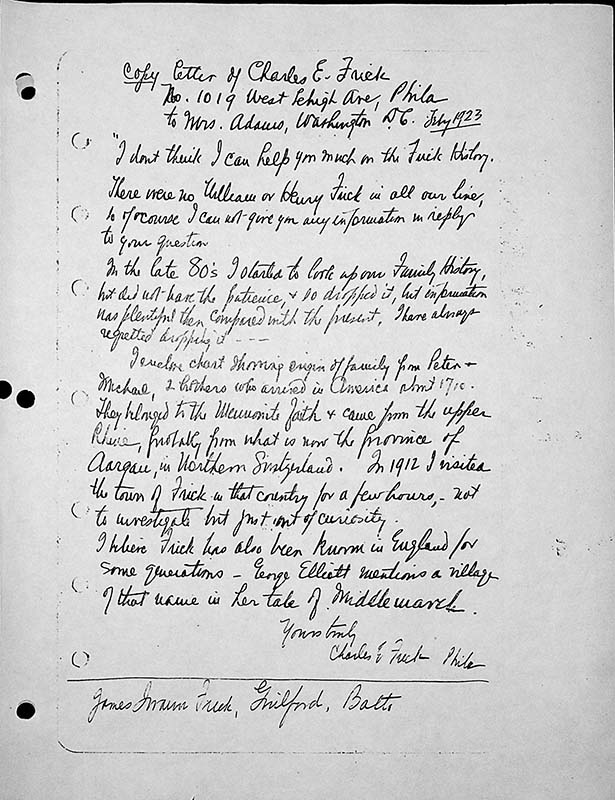 Copy letter of Charles E. Frick
No. 1019 West Lehigh Ave, Phila
to Mrs. Adams, Washington D.C. Feby 1923
"I dont think I can help you much on the Frick History.
There were no William or Henry Frick in all our line,
so of course I can not give you any information in reply
to your question
In the late 80's I started to look up our Family History,
but did not have the patience, & so dropped it, but information
was plentiful then compared with the present. I have always
regretted dropping it - - -
I enclose chart showing origin of family from Peter &
Michael, 2 brothers who arrived in America about 17
They belonged to the Mennonite faith & came from the upper
Rhine, probably from what is now the province of
Aargau, in Northern Switzerland. In 1912 I visited
the town of Frick in that country for a few hours, - not
to investigate but just out of curiosity.
I believe Frick has also been known in England for
some generations - George Elliott mentions a village
of that name in her tale of Middlemarch.
Yours truly
Charles E Frick Phila
James Swann Frick, Guilford, Balto